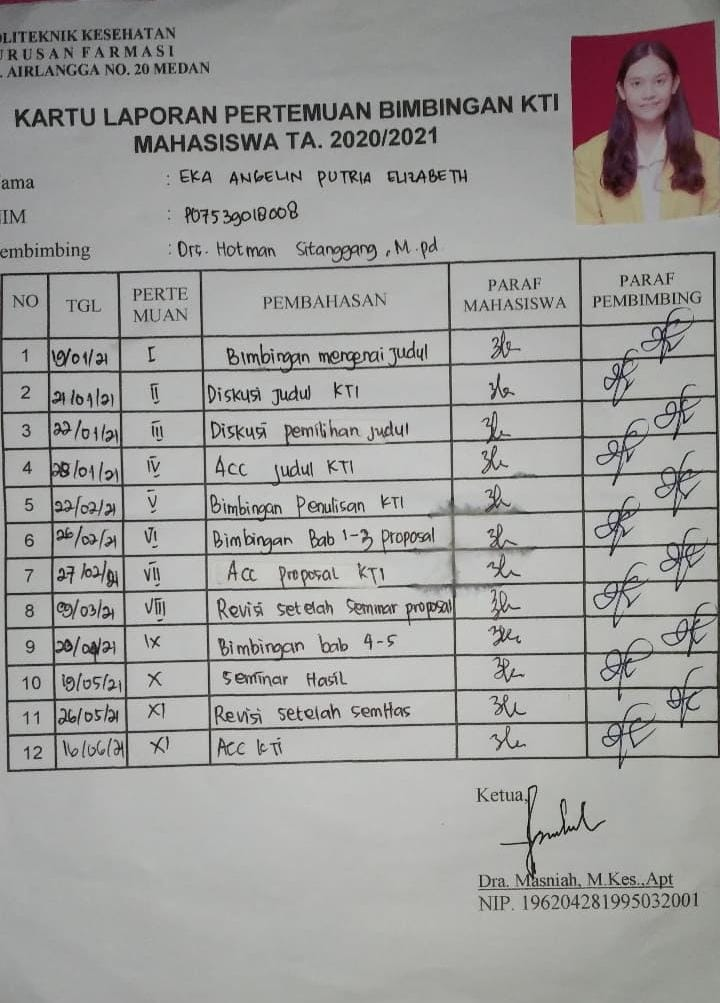 OLITEKNIK KESEHATAN
URUSAN FARMASI
. AIRLANGGA NO. 20 MEDAN
KARTU LAPORAN PERTEMUAN BIMBINGAN KTI
MAHASISWA TA. 2020/2021
ama : EKA ANGELIN PUTRIA ELIZABETH
IM : P07539018008
embimbing : Drs. Hotman Sitanggang, M.pd
NO TGL PERTE MUAN PEMBAHASAN PARAF MAHASISWA PARAF PEMBIMBING
1 19/01/21 I Bimbingan mengenai judul
2 21/01/21 II Diskusi judul KTI
3 22/01/21 III Diskusi pemilihan judul
4 28/01/21 IV Acc judul KTI
5 22/02/21 V Bimbingan Penulisan KTI
6 26/02/21 VI Bimbingan Bab 1-3 proposal
7 27/02/21 VII Acc Proposal KTI
8 09/03/21 VIII Revisi setelah seminar proposal
9 20/04/21 IX Bimbingan bab 4-5
10 19/05/21 X Seminar Hasil
11 26/05/21 XI Revisi setelah semHas
12 16/06/21 XI Acc KTI
Ketua,
Dra. Masniah, M.Kes.,Apt
NIP. 196204281995032001